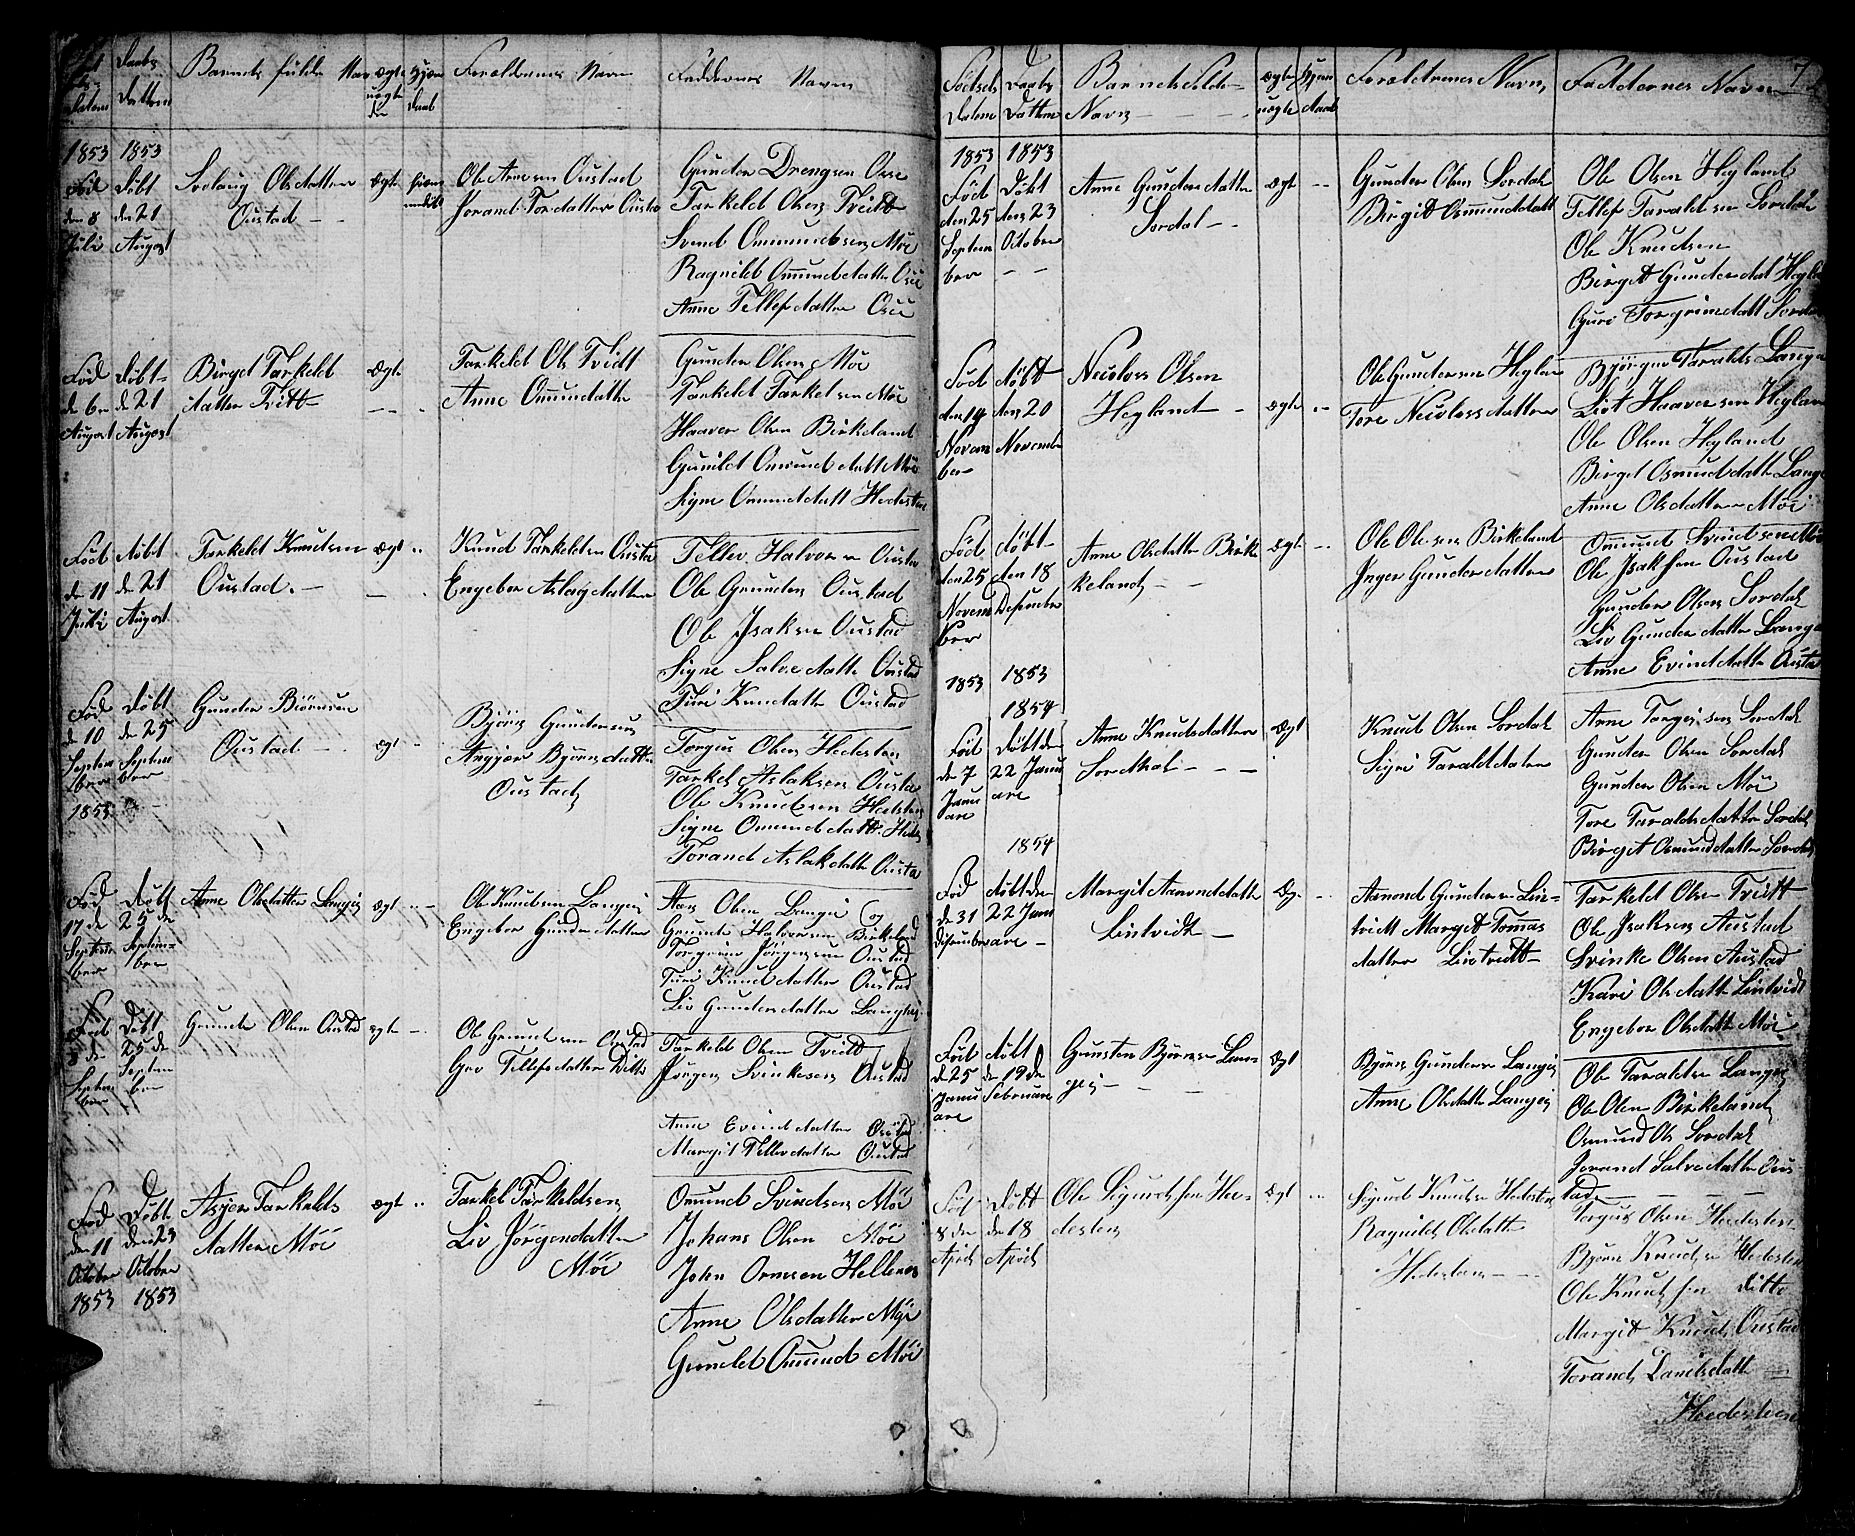 Daabs Datten
Barnets fulde Nav
ægte uægte
Hjem Daab
Forældrenes Navn
Faddernes Navn
1853 1853
Fød den 8 Juli
Døbt den 21 August
Solaug Olsdatter
Oustad
ægte
Ole Arnesen Oustad
Jorand Tordatter Oustad
Gunder Drengsen Ose
Tarkeld Olsen Tvidt
Svend Omundsen Möe
Ragnild Omundsdatter
Anne Tellefsdatter
Fød de 6 August
Døbt de 21 August
Birget Tarkeld
datter Tvitt
Ægte
Tarkeld Ols Tvidt
Anne Omundatter
Gunder Olsen Möe
Tarkeld Tarkelsen Möe
Haaver Olsen Birkeland
Gunild Omund datt Möe
Signe Omund datt Hedesten
Fød de 11 Juli
Døbt de 21 August
Tarkeld Knudsen
Oustad.
Ægt
Knud Tarkeldsen Ousta
Engebor Aslagdatter
Tellev Halvorsen Oustad
Ole Gundersen Oustad
Ole Isaksen Oustad
Signe Salvedatte Oustad
Turi Knudatte Oustad
Fød de 10 September
Døbt de 25 September
1853
Gunder Biörnsen
Oustad
ægt
Bjørn Gundersen
Bjørnsdatter
Oustad
Torgus Olsen Hedesten
Tarkel Aslaksen Ousta
Ole Knudsen Hedesten
Signe Omund datt
Torand Aslakdatte Ousta
Fød 17 de September
Døbt 25 de September
Anne Olsdatter Langeig
ægt
Ole Knudsen Langeig
Engebor Gunderdatter
Olsen Langei og
Halvorsen Birkeland
Torgrim Jørgensen Oustad
Turi Knud datter Oustad
Liv Gunder datter Langeig
Fød 8 de September
Døbt 25 de September
Olsen Oustad
ægte
Ole Oustad
Tellefsdatter Ditto
Tarkeld Olsen Tvidt
Jörgen Svinkesen Oustad
Anne Evind datter Oustad
Margit Tellevdatter Oustad
Fød den 11 October 1853
Døbt den 23 October 1853
Tarkelds
datter Möe
ægt
Tarkel Tarkeldsen
Liv Jørgendatter
Möe
Omund Svindsen Möe
Johans Olsen Möe
John Ormsen Hellenes
Anne Olsdatter Möe
Gunild Omund Möe
7
Fødsels Datum
Daabs Dattene
Barnets fulde Navn
ægte uægte
Hjem Daab
Forældrenes Navn
Faddernes Navn
1853 1853
Fød den 25 September
Døbt den 23 October
Anne Gundersdatter
Sordal
ægt
Gunder Olsen Sordal
Birgit Osmunddatt
Ole Olsen Hegland
Tellef Taraldsen Sordal
Ole Knudsen
Birget Gunderdat
Guri Torgrimdatt Sordal
Fød den 14 November
Døbt den 20 November
Neioloss Olsen
Hegland
ægte
Ole Gundersen
Tore Neioloss datter
Bjørgu Taralds Lange
Livt Haaversen
Ole Olsen Hegland
Birget Osmunddatte Lange
Anne Olsdatter Möe
Fød den 25 November
Døbt den 18 Desember
Anne Olsdatter Birke
keland
ægt
Ole Olesen Birkeland
Inger Gunderdatter
Omund Svindsen Möe
Ole Isaksen Oustad
Gunder Olsen Sordal
Liv Gunder datter Lange
Anne Evinddatte Ousta
1853 1853
1854
Fød de 7 Januare
Døbt den 22 Januare
Anne Knudsdatter
Sordhal
Ægt
Knud Olsen Sordal
Signe Taralddatter
Anne Torgeisen Sordal
Gunder Olsen Sordal
Gunder Olsen Möe
Tore Taraldsdatter Sordal
Birget Osmunddatter Sordal
1854
Fød de 31 Desember
døbt den 22 Januare
Margit Aanonddatte
Lintvidt
Aanond Gundersen Lin-
tvitt Margit Tommas
datter Lintvedt
Tarkeld Olsen Tvitt
Ole Isaksen Austad
Svinke Olsen Austad
Kari Olsdatte Lintvidt
Engebor Olsdatte Möe
Fød de 25 Januare
døbt de 19 de Februare
Gunsten Bjørnsen Lan-
geig
Ægt
Bjørn Gundersen Langeig
Anne Olsdatte Langeig
Ole Taraldsen Langeig
Ole Olsen Birkeland
Osmund Ols Sordal
Jorand Salvedatter Ous
tad
Fød 8 de April
Døbt de 18 April
Ole Sigurdsen Hee-
desten
Ægt
Sigurd Knudsen Hedesten
Ragnild Olsdatte
Hedesten
Torgus Olsen Heedesten
Bjørn Knudsen Hedesten
Ole Knudsen ditto
Margit Knuds Oustad
Torand datte
Heedesten